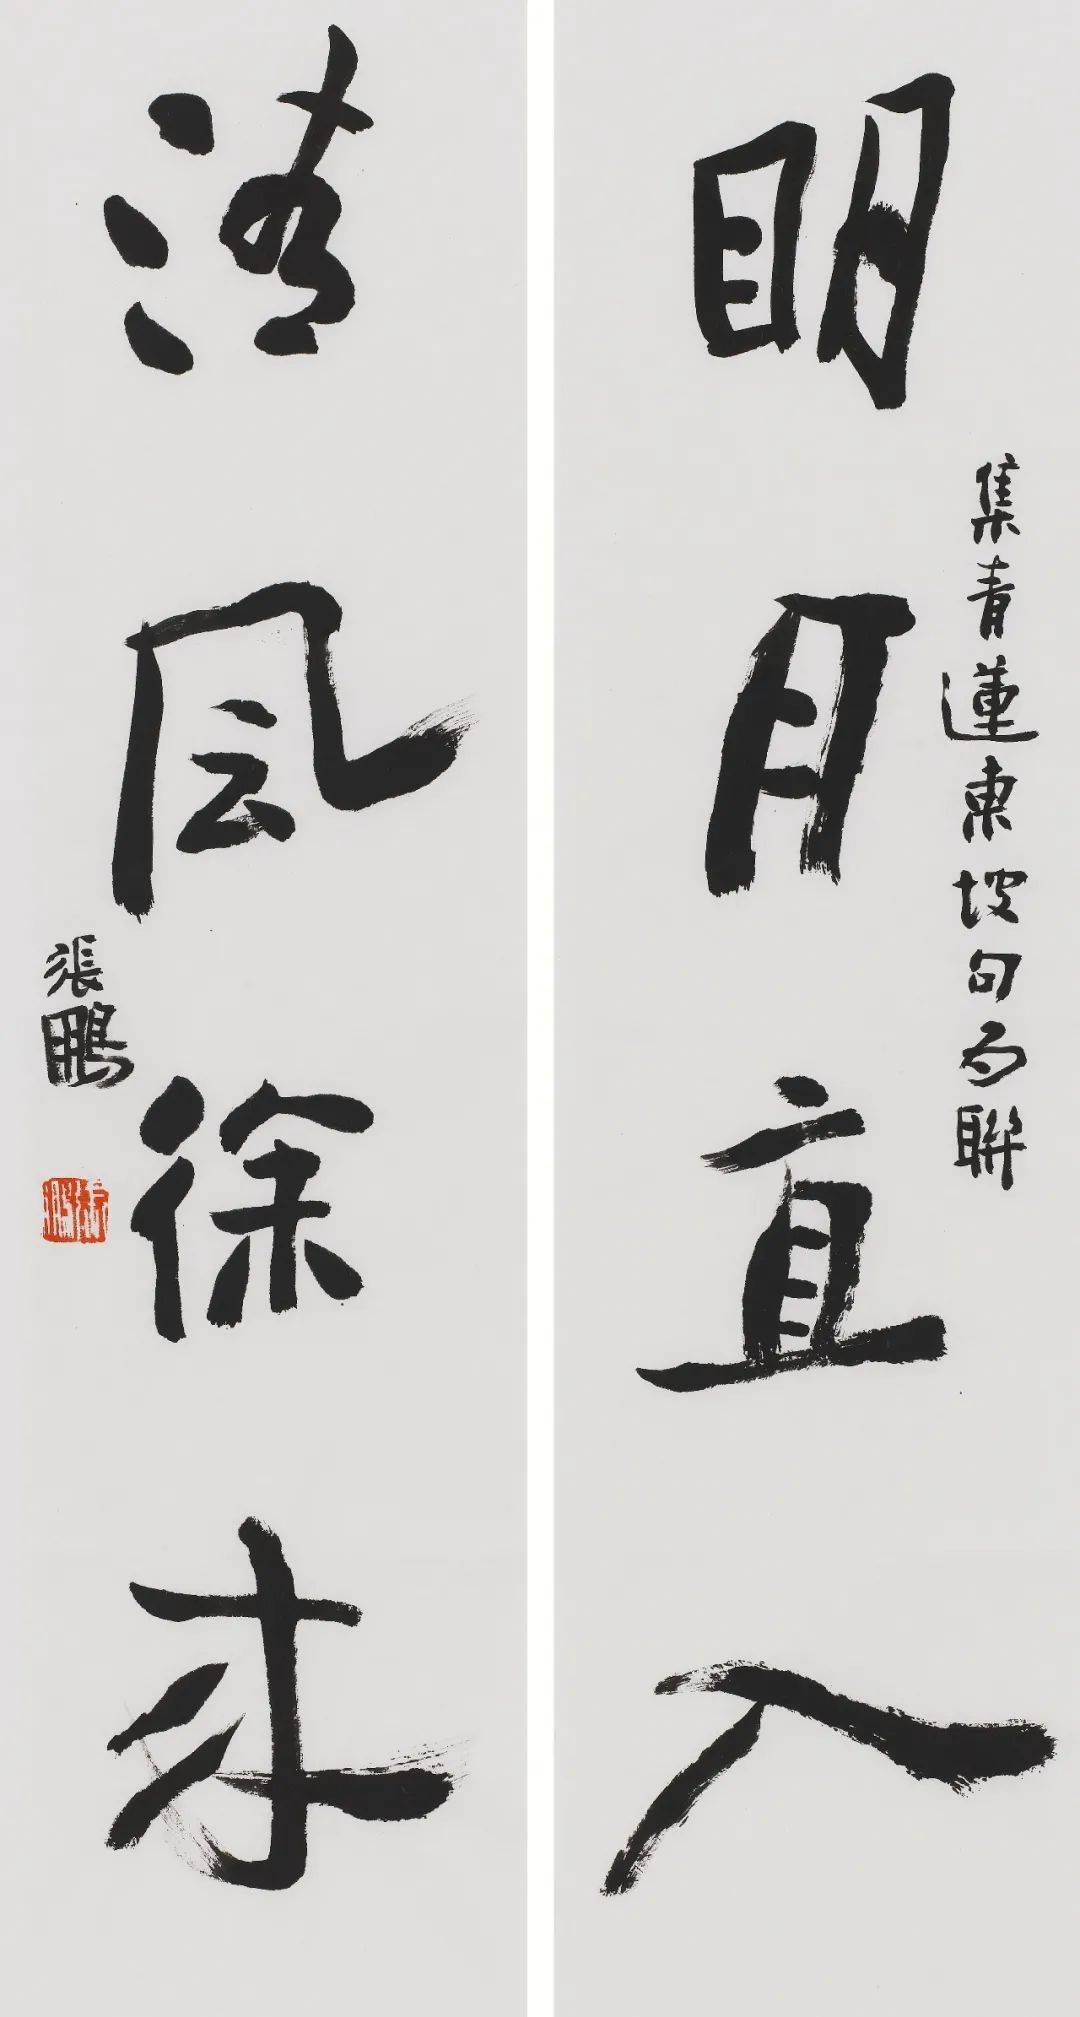 明月直入
集青蓮東坡句为聯
清风徐来
張鵬